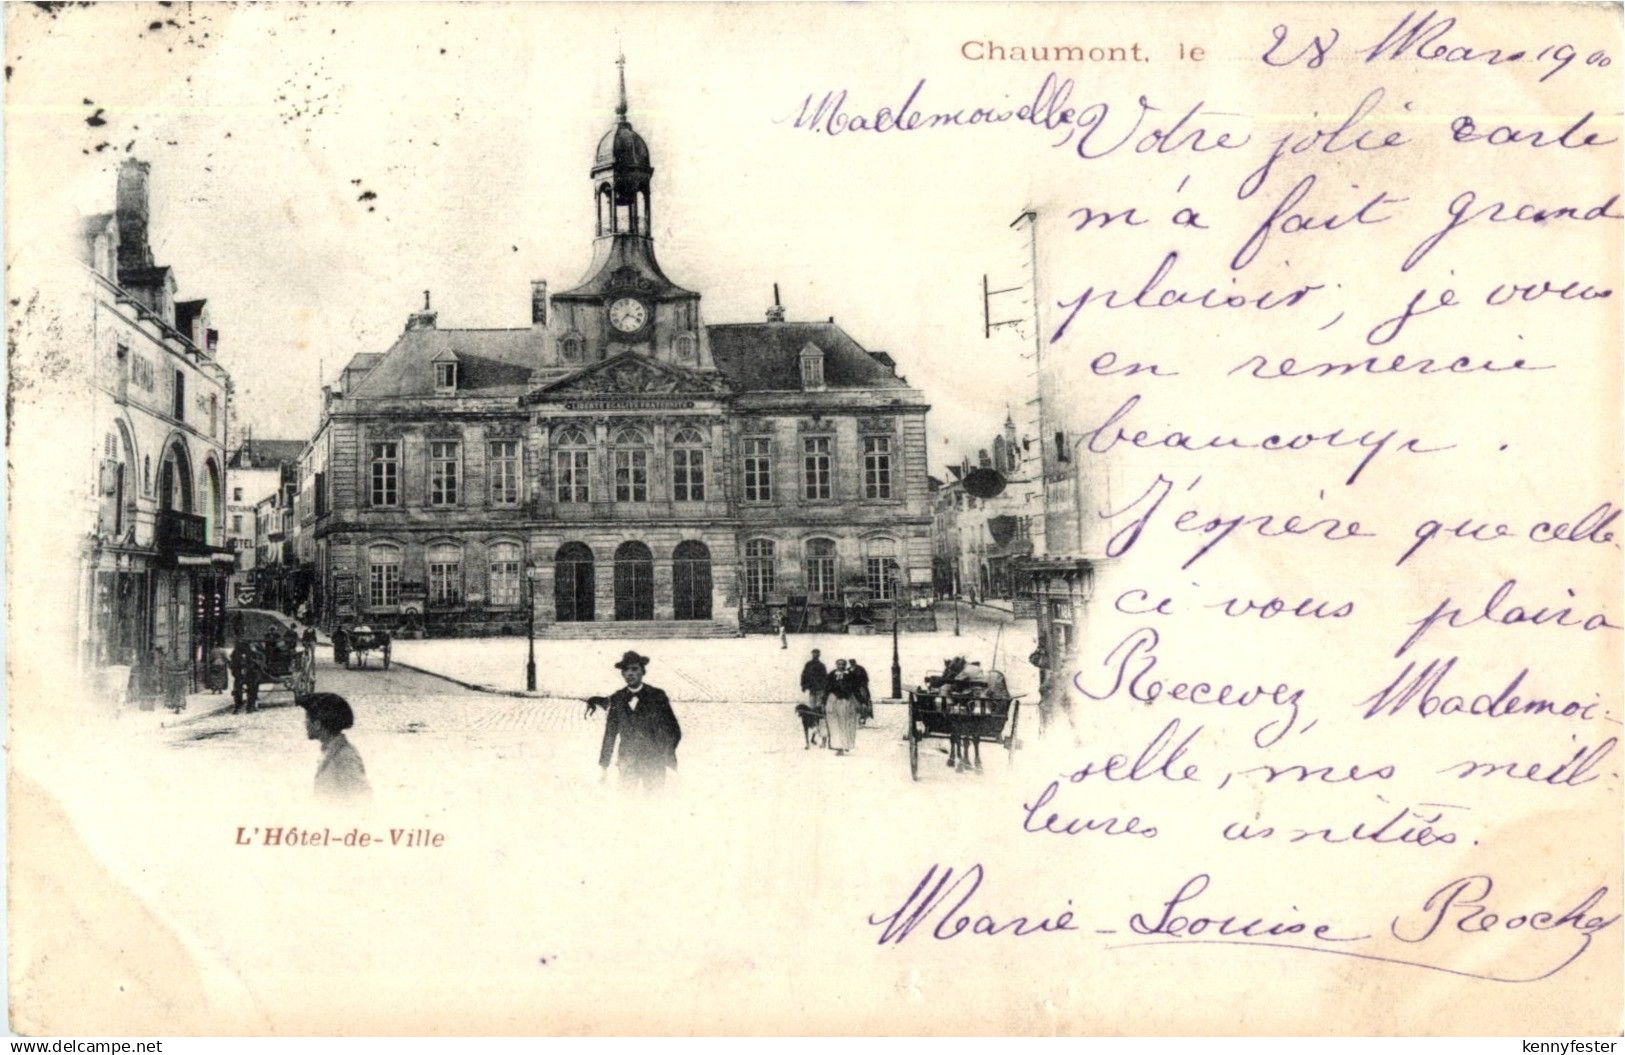 Chaumont, le 28 Mars 1900
Mademoiselle,
Votre jolie carte
m'a fait grand
plaisir, je vous
en remercie
beaucoup.
J'espère que celle-
ci vous plaira
Recevez, Mademoi-
selle, mes meil-
leures amitiés.
Marie-Louise
LIBERTE EGALITE FRATERNITE
L'Hôtel-de-Ville
delcampe.net
kennyfester